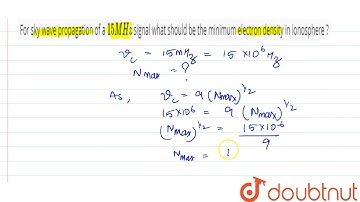 For sky wave propagation of a 15MHz signal what should be the minimum electron density in ionosphere ?
νc = 15 MHz = 15 × 10⁶ Hz
Nmax = ?
As, νc = 9 (Nmax)^1/2
15×10⁶ = 9 (Nmax)^1/2
(Nmax)^1/2 = 15×10⁻⁶ / 9
Nmax = (
doubtnut